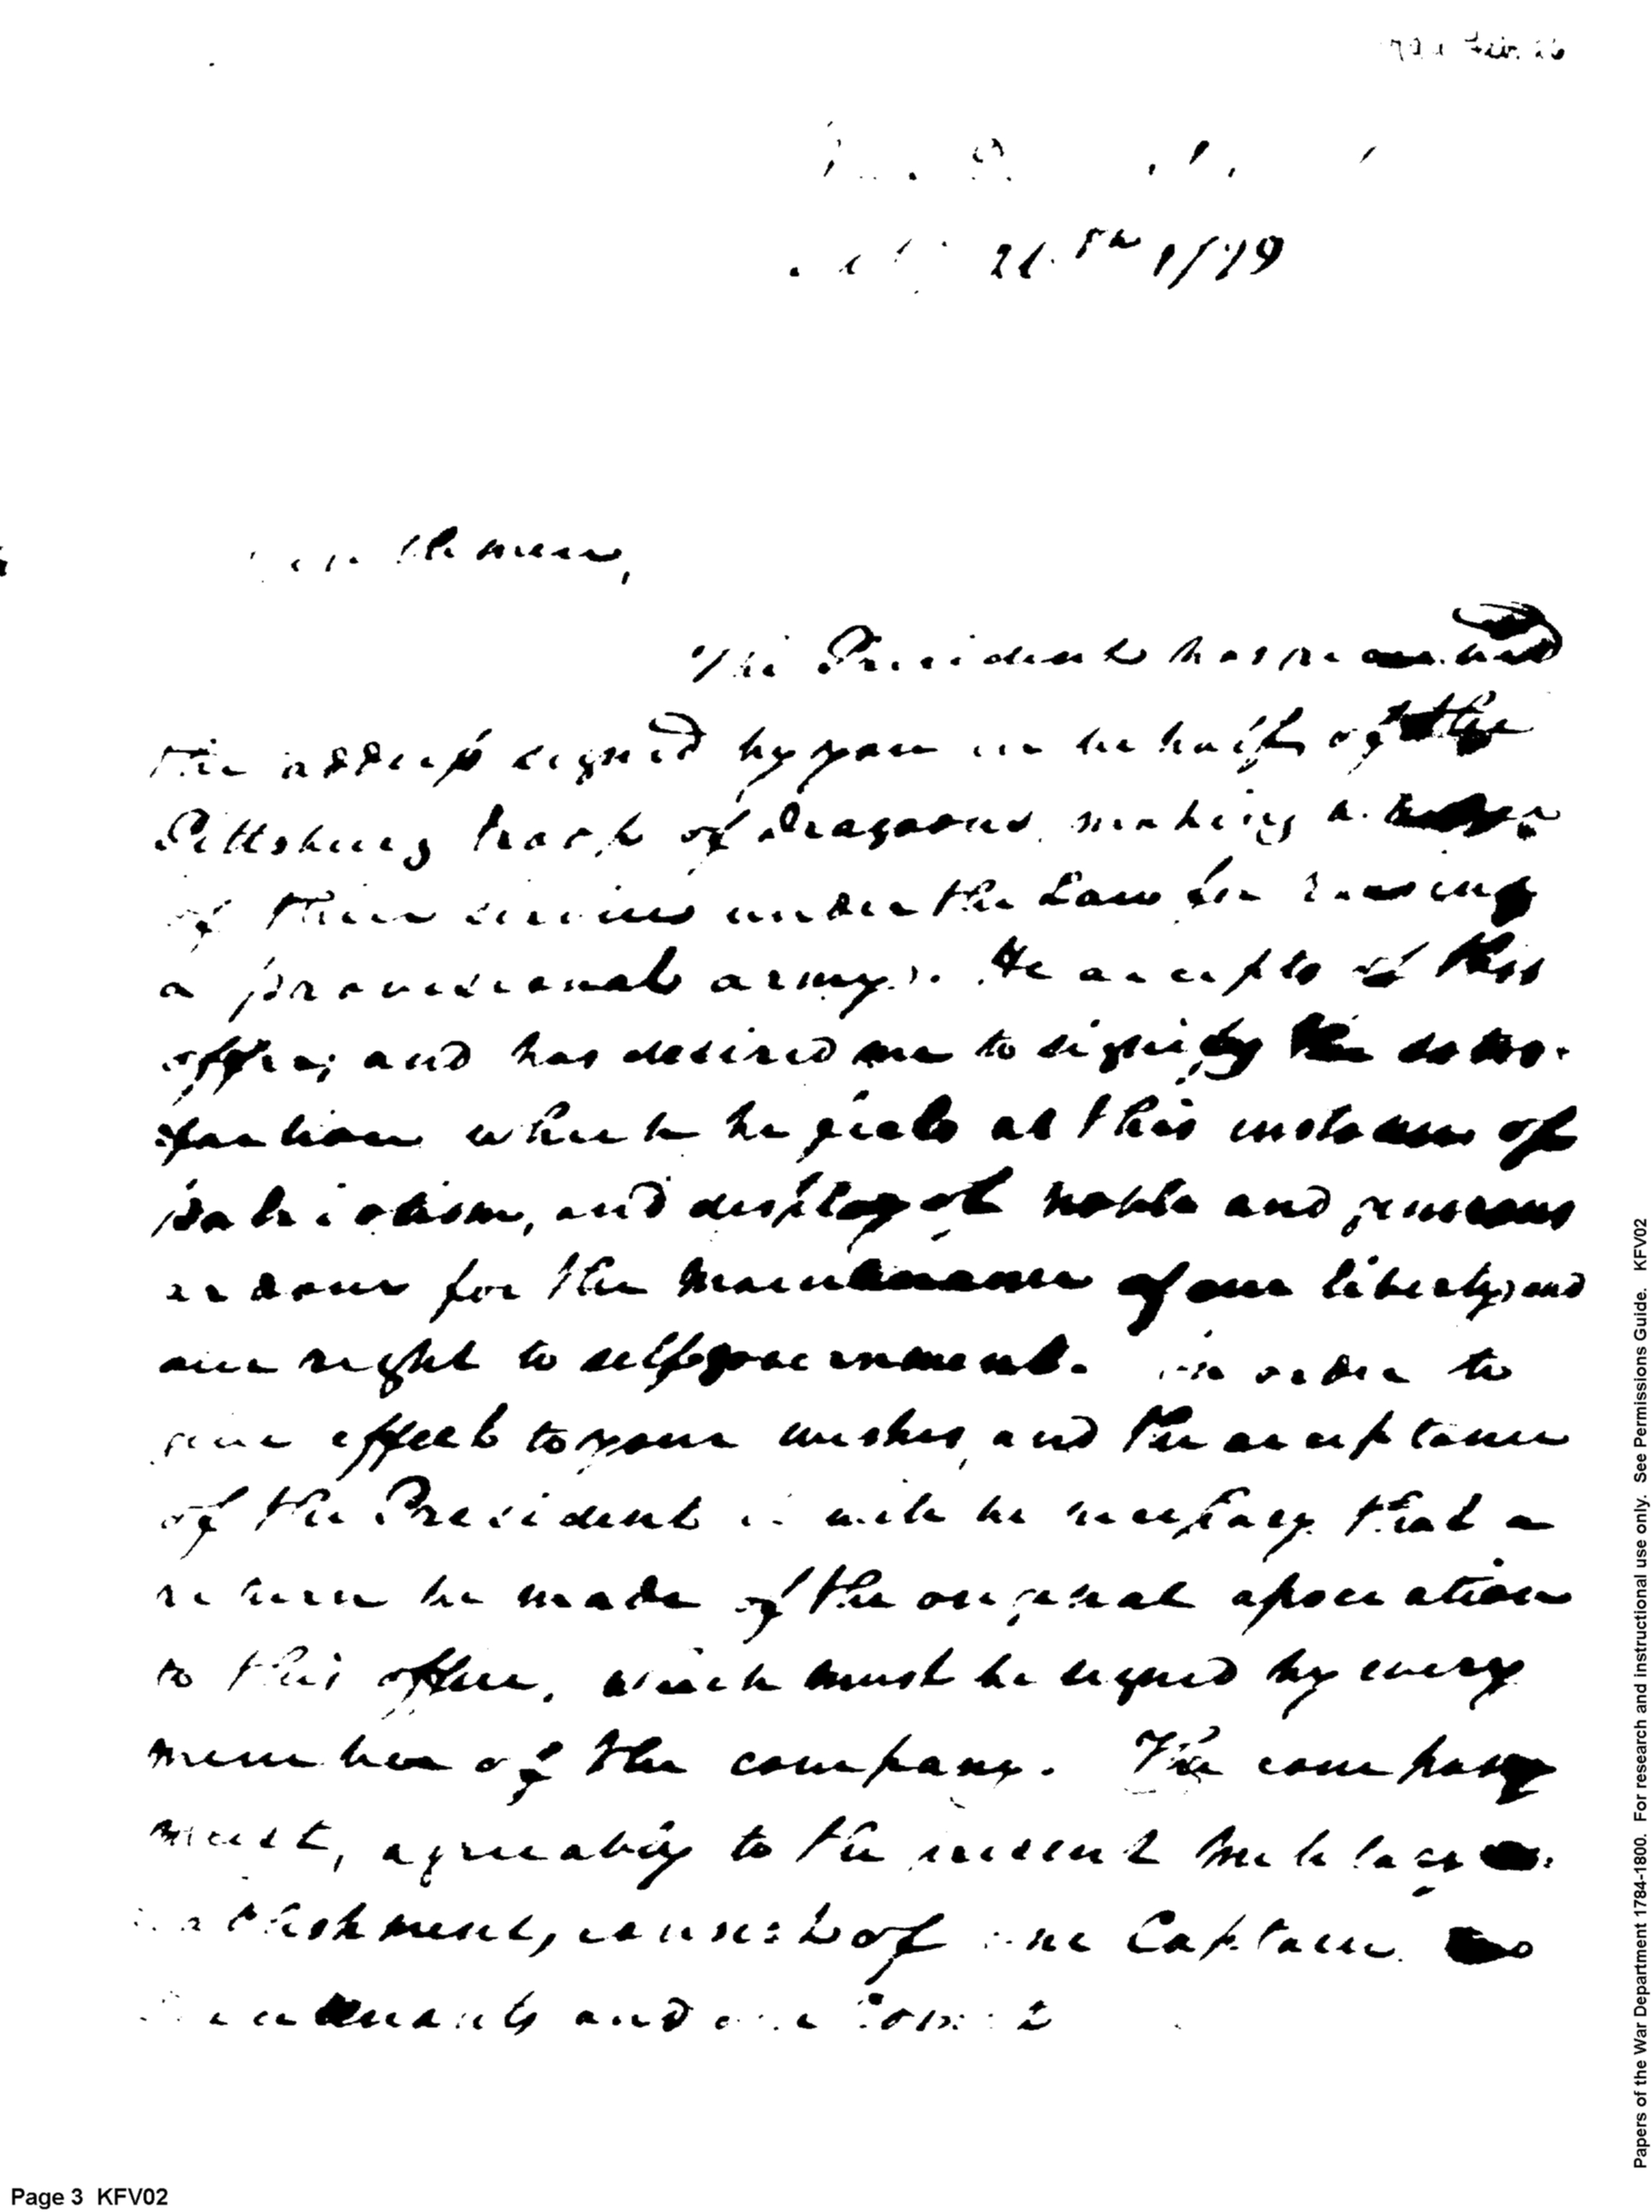 Feb. 26
26th 1799
Gentlemen,
The President has received
the address signed by you in behalf of the
Pittsburg troop of dragoons, making a tender
of their services under the Law for raising
a provisional army. He accepts of this
offer, and has desired me to signify the satis-
faction which he feels at this instance of
patriotism, and display of noble and generous
ardour for the maintenance of our liberty, and
our right to self government. In order to
give effect to your wishes, and the acceptance
of the President it will be necessary that a
return be made of the original association
to this office, which must be signed by every
member of the company. The company
must, agreeably to the present military es-
tablishment, consist of one Captain two
Lieutenants and one Cornet
Page 3 KFV02
Papers of the War Department 1784-1800. For research and instructional use only. See Permissions Guide. KFV02